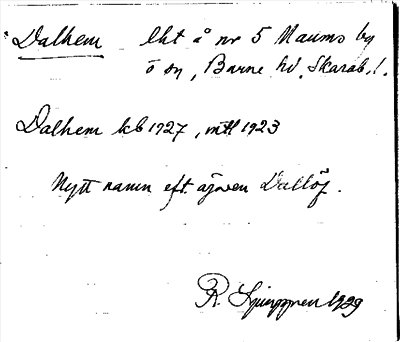 Dalhem lht å nr 5 Maums by
ö sn, Barne hd, Skarab. l.
Dalhem kb 1927, mtl 1923
Nytt namn eft. ägaren Dallöf.
R. Ljunggren 1929